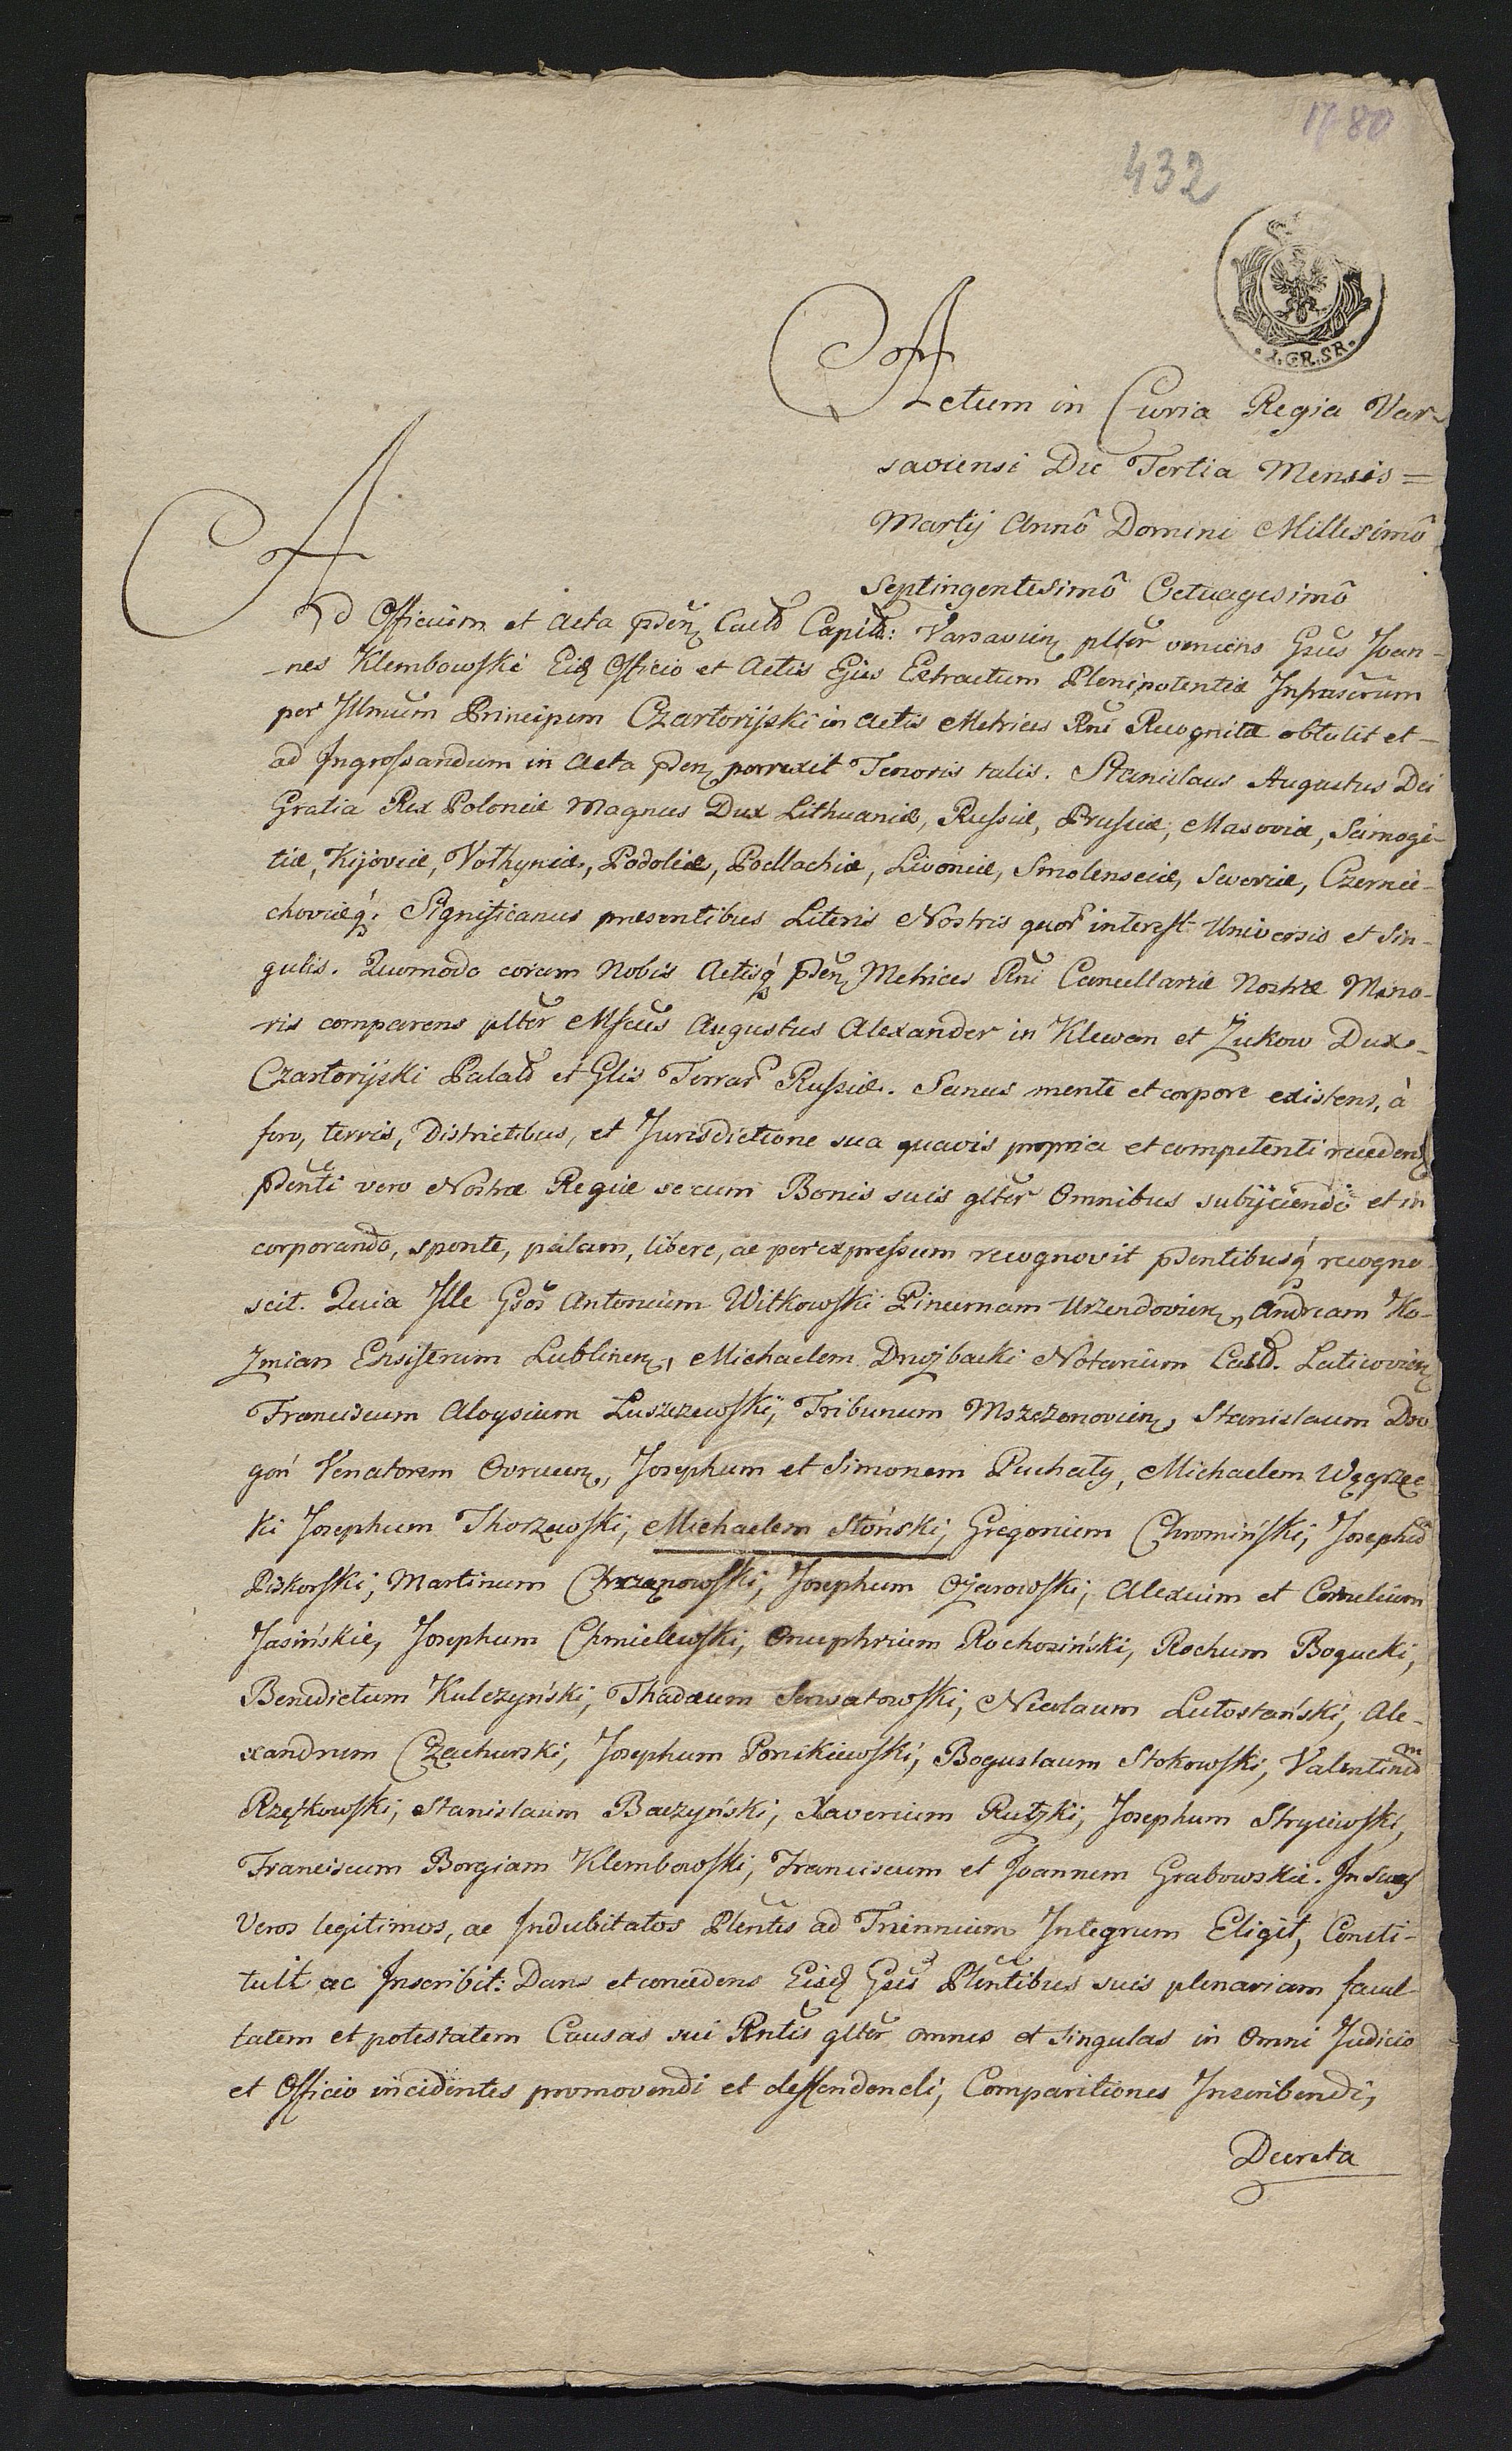 1780
432
1.GR.SR.
Actum in Curia Regia Var-
saviensi Die Tertia Mensis =
Martij Annô Domini Millesimô
Septingentesimô Octuagesimô
Ad Officium et Acta pden Castr Capit: Varsavien pltĕr veniens Gsus Joan-
-nes Klembowski Eid Officio et Actis Ejus Extractum Plenipotentiæ Infrascrum
per Jllmum Principem Czartoryski in Actis Metrices Rni Recognitæ obtulit et -
ad Ingrossandum in Acta pden porrexit Tenoris talis. Stanislaus Augustus Dei
Gratia Rex Poloniæ Magnus Dux Lithuaniæ, Russiæ, Prussiæ, Masoviæ, Samogi-
tiæ, Kijoviæ, Volhyniæ, Podoliæ, Podlachiæ, Livoniæ, Smolensciæ, Severiæ, Czernie-
choviæq. Significamus præsentibus Literis Nostris quor interest Universis et Sin-
gulis. Quomodo coram Nobis Actisq pden Metrices Rni Cancellariæ Nostræ Mino-
ris comparens pltĕr Mfcus Augustus Alexander in Klewan et Żukow Dux -
Czartoryski Palat et Glis Terrar Russiæ. Sanus mente et corpore existens, à
foro, terris, Districtibus, et Jurisdictione sua quavis propria et competenti recedens
pdenti vero Nostræ Regiæ se cum Bonis suis gltĕr Omnibus subijciendo et in
corporando, sponte, palam, libere, ac per expressum recognovit pdentibusq recogno
scit. Quia Ille Gsos Antonium Witkowski Pincernam Urzendovien, Andream Ko-
zmian Ensiferum Lublinen, Michaelem Druzbacki Notarium Cast. Laticovien
Franciscum Aloysium Luszczewski, Tribunum Mszczonovien, Stanislaum Dow
goń Venatorem Ovrucen, Josephum et Simonem Puchały, Michaelem Węgrzec
ki Josephum Thorzewski, Michaelem Słoński, Gregorium Chromiński, Josephu
Piskorski, Martinum Chrzanowski, Josephum Ożarowski, Alexium et Cornelium
Jasińskie, Josephum Chmielewski, Onuphrium Rochoziński, Rochum Bogucki,
Benedictum Kulczyński, Thadæum Serwatowski, Nicolaum Lutostański, Ale-
xandrum Czachurski, Josephum Ponikiewski, Boguslaum Stokowski, Valentinum
Rzęskowski, Stanislaum Baczyński, Xaverium Rutzki, Josephum Stryiewski,
Franciscum Borgiam Klembowski, Franciscum et Joannem Grabowskie. In suos
Veros legitimos, ac Indubitatos Plentes ad Triennium Integrum Eligit, Consti-
tuit ac Inscribit: Dans et concedens Eisd Gsis Plentibus suis plenariam facul-
tatem et potestatem Causas sui Rntis gltĕr omnes et singulas in Omni Judicio
et Officio incidentes promovendi et deffendendi, Comparitiones Inscribendi,
Decreta